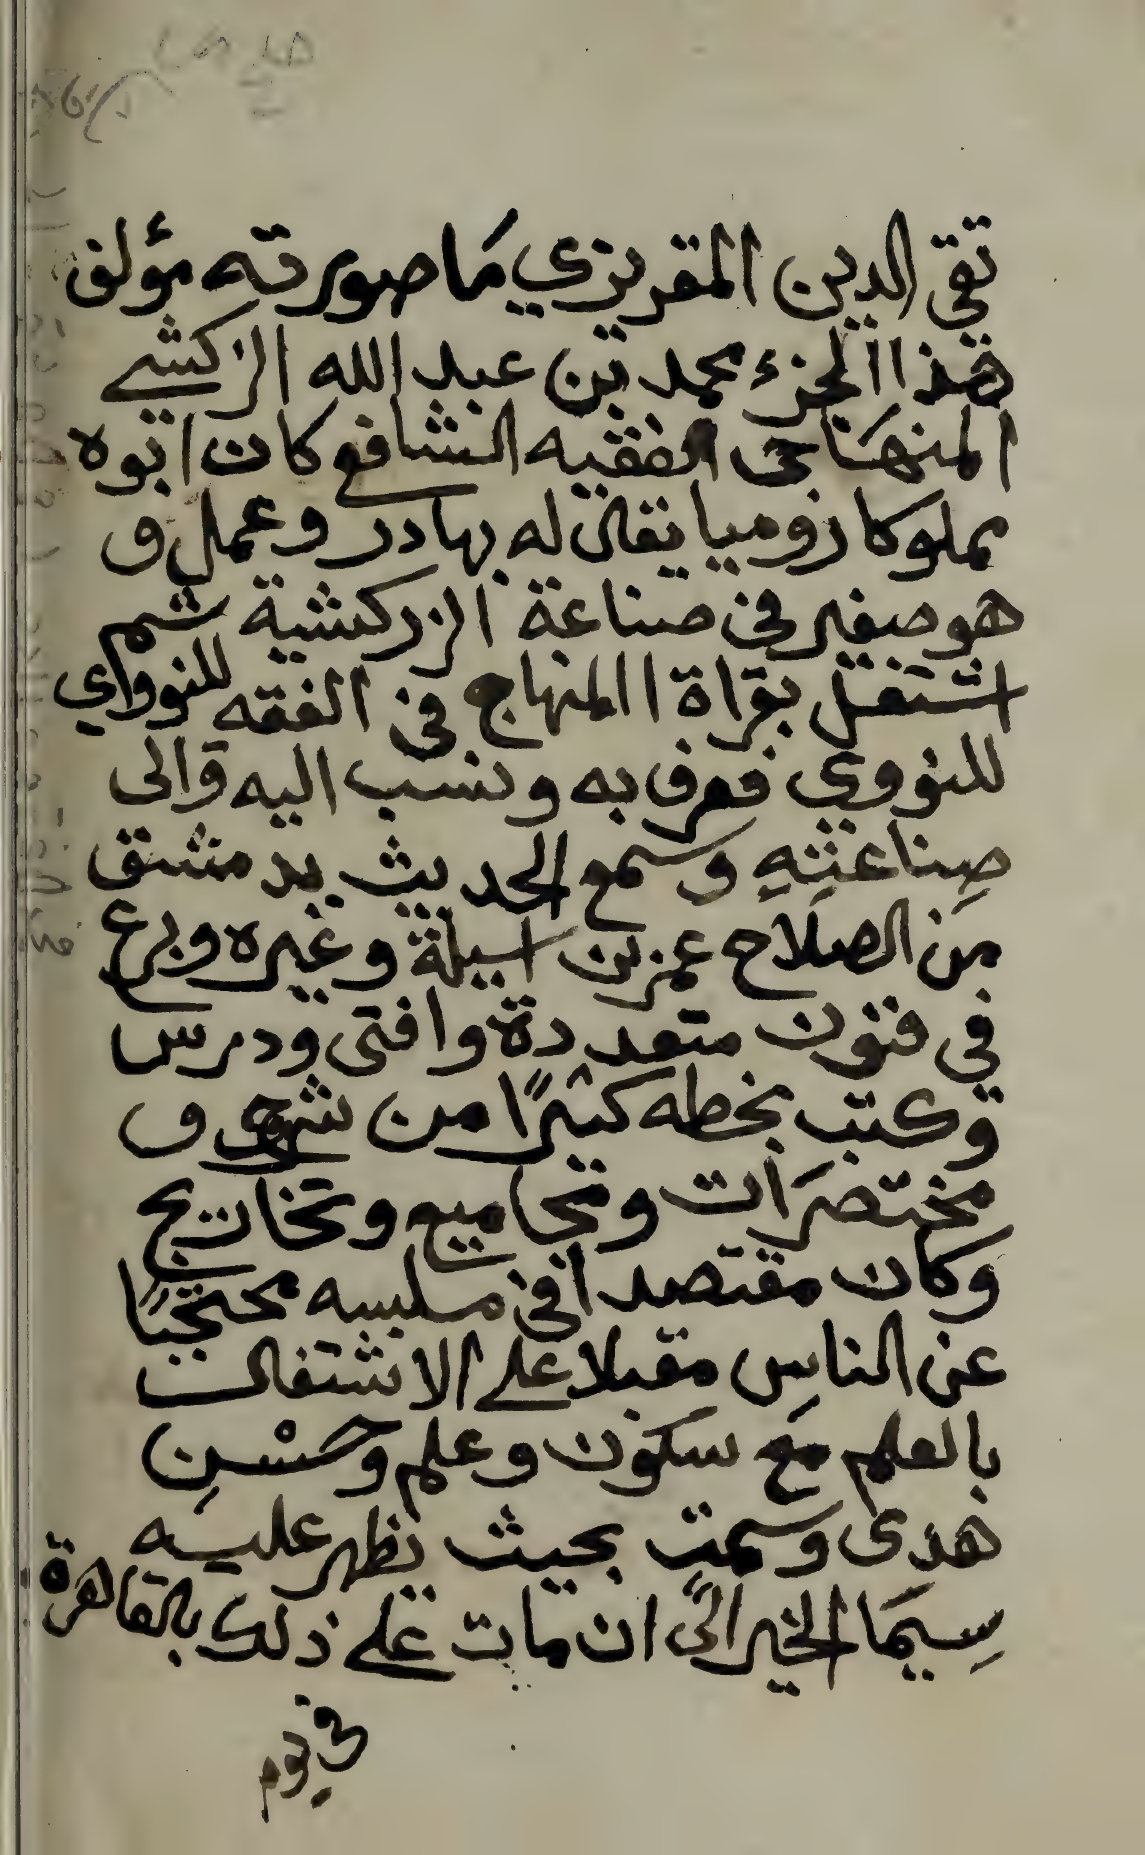 تقي الدين المقريزي ما صورته مؤلف
هذا الجزء محمد بن عبد الله الزركشي
المنهاجي الفقيه الشافعي كان ابوه
مملوكا روميا يقال له بهادر وعمل و
هو صغير في صناعة الزركشية ثم
اشتغل بقراة المنهاج في الفقه للنوواي
للنووي فعرف به ونسب اليه والى
صِناعتِهِ وسمع الحديث بدمشق
من الصلاح عمر بن اسيلة وغيره وبرع
في فنون متعددة وافتى ودرس
وكتب بخطه كثيرًا من شروح و
مختصرَات ومجاميع وتخاريج
وكان مقتصدا في ملبسه محتجبًا
عن الناسِ مقبلا على الاشتغال
بالعلم مَع سكون وعلم وحَسْنِ
هدى وسمتٍ بحيث يظهر عليه
سِيمَا الخير الى ان مات على ذلك بالقاهرة
في يوم